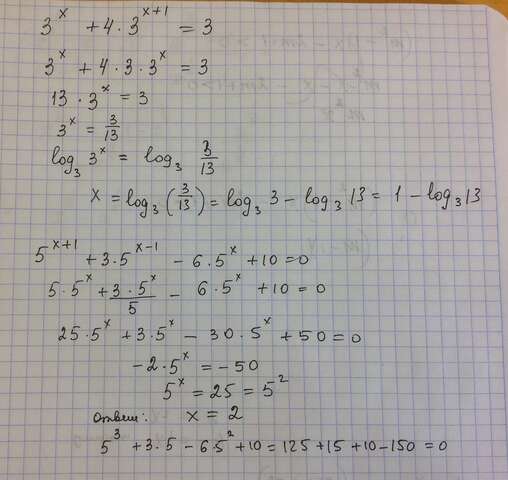 3^x + 4 · 3^{x+1} = 3
3^x + 4 · 3 · 3^x = 3
13 · 3^x = 3
3^x = 3/13
log_3 3^x = log_3 3/13
x = log_3 (3/13) = log_3 3 - log_3 13 = 1 - log_3 13
5^{x+1} + 3 · 5^{x-1} - 6 · 5^x + 10 = 0
5 · 5^x + (3 · 5^x)/5 - 6 · 5^x + 10 = 0
25 · 5^x + 3 · 5^x - 30 · 5^x + 50 = 0
-2 · 5^x = -50
5^x = 25 = 5^2
Ответ: x = 2
5^3 + 3 · 5 - 6 · 5^2 + 10 = 125 + 15 + 10 - 150 = 0